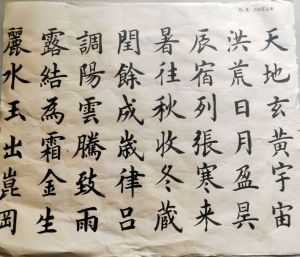 天地玄黃宇宙
洪荒日月盈昃
辰宿列張寒来
暑往秋收冬藏
閏餘成歲律呂
調陽雲騰致雨
露結為霜金生
麗水玉出崑岡